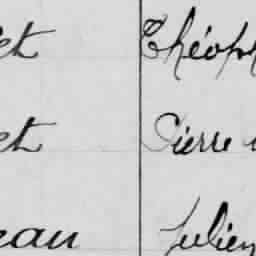 et Théoph
et Pierre
eau Julien